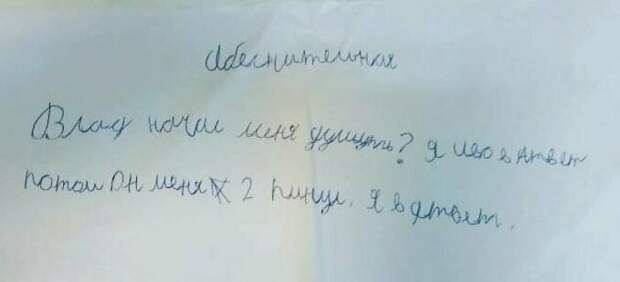 Абеснительная
Влад начал меня душить? я иво в атвет
потом он меня 2 пинул. я в атвет.